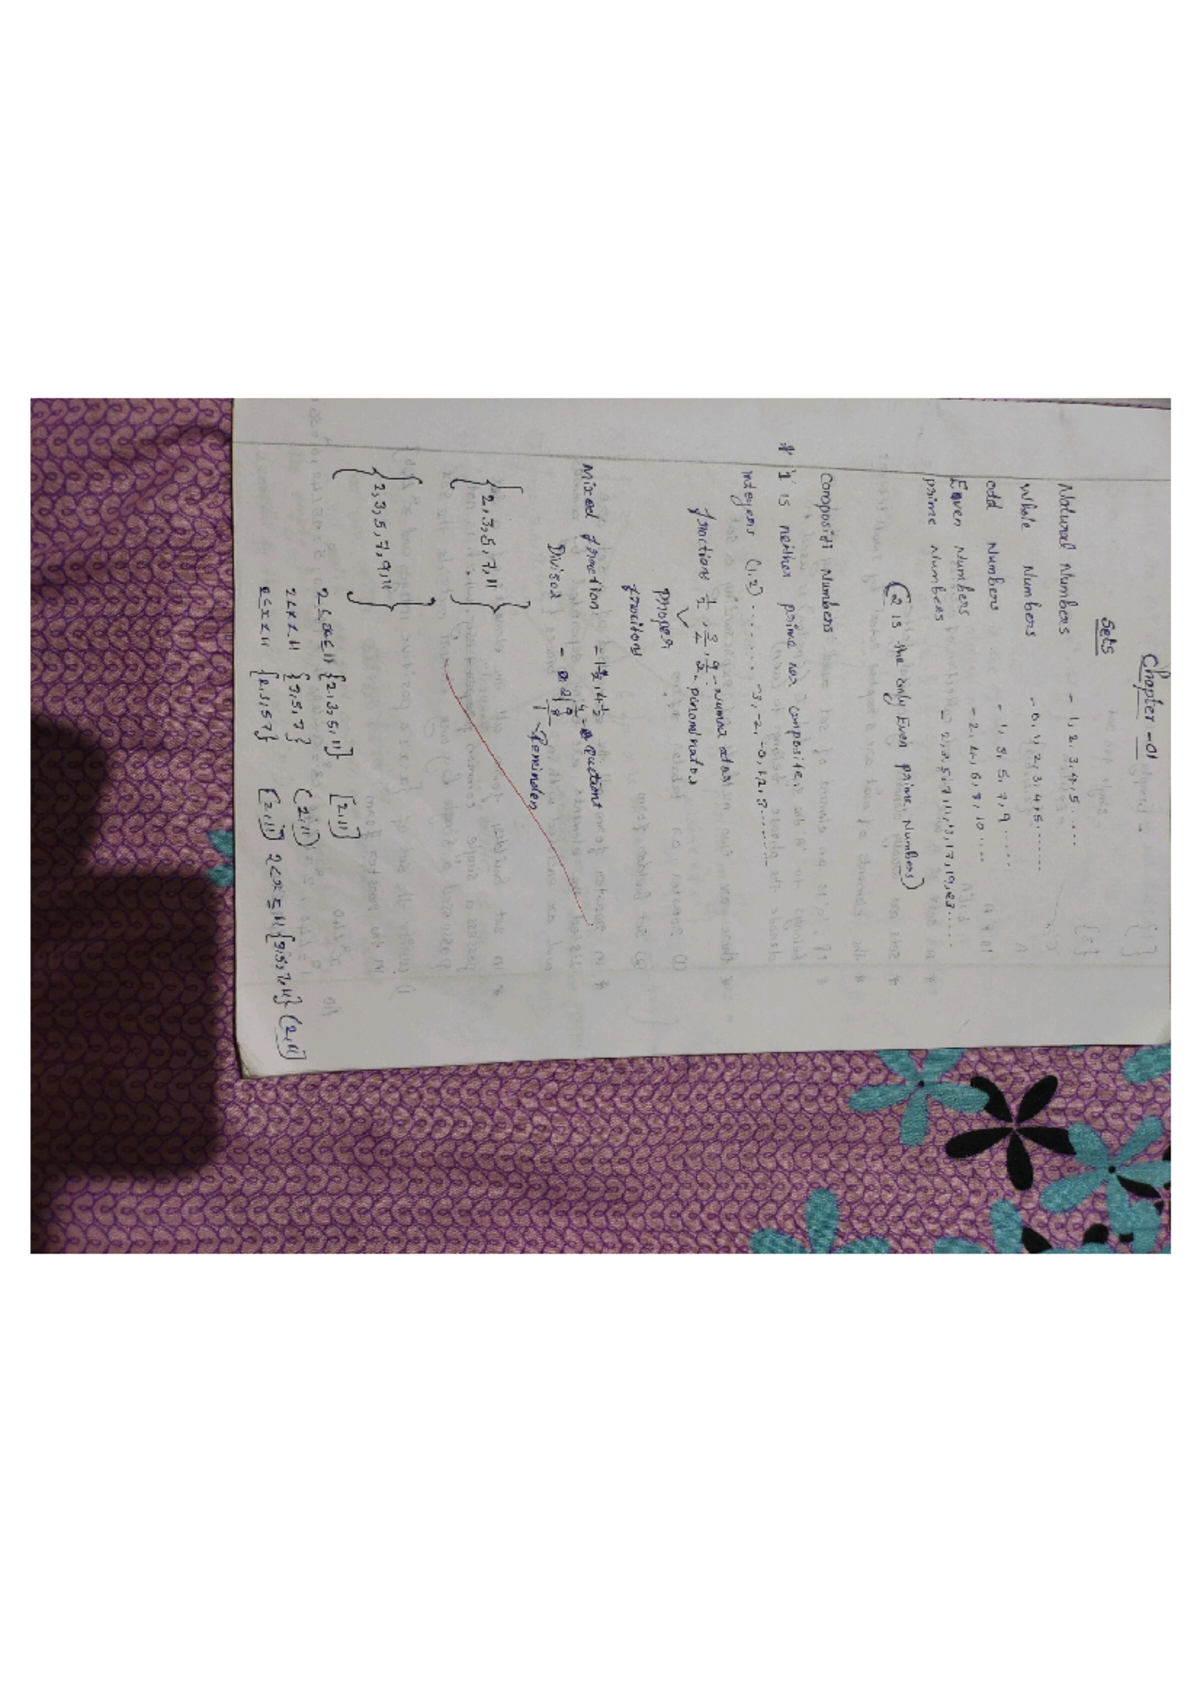 Chapter - 01
Sets
Natural Numbers - 1, 2, 3, 4, 5 .....
Whole Numbers - 0, 1, 2, 3, 4, 5 .......
odd Numbers - 1, 3, 5, 7, 9 ......
Even Numbers - 2, 4, 6, 8, 10 ....
prime Numbers - 2, 3, 5, 7, 11, 13, 17, 19, 23 .....
(2 is the only Even prime Numbers)
Compositi Numbers
* '1' is neither prime nor composite,
Integers (1,2) ........ -3, -2, -0, 1, 2, 3 .......
fractions 1/2, 3/2, 9/2 - Numarator
2 - Denominator
Proper
fractions
Mixed fraction =
Divisor - 2
Reminder
{2, 3, 5, 7, 11}
{2, 3, 5, 7, 9, 11}
2 ≤ x ≤ 11 {2, 3, 5, 11] [2, 11]
2 < x < 11 {3, 5, 7} (2, 11)
2 ≤ x < 11 {2, 3, 5 7} [2, 11) 2 < x ≤ 11 {3, 5, 7, 11} (2, 11]